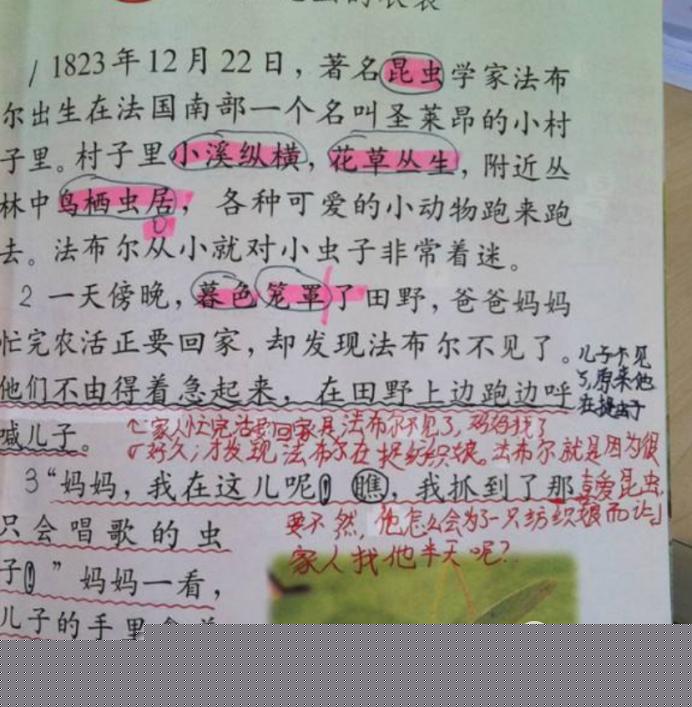 1823年12月22日，著名昆虫学家法布
尔出生在法国南部一个名叫圣莱昂的小村
子里。村子里小溪纵横，花草丛生，附近丛
林中鸟栖虫居，各种可爱的小动物跑来跑
去。法布尔从小就对小虫子非常着迷。
2 一天傍晚，暮色笼罩了田野，爸爸妈妈
忙完农活正要回家，却发现法布尔不见了。
儿子不见
了，原来他
在捉虫子
他们不由得着急起来，在田野上边跑边呼
喊儿子。
家人忙完活要回家是法布尔不见了，妈妈找了
好久；才发现法布尔在捉纺织娘。法布尔就是因为很
喜爱昆虫，
要不然，他怎么会为了一只纺织娘而让
家人找他半天呢？
3“妈妈，我在这儿呢！瞧，我抓到了那
只会唱歌的虫
子！”妈妈一看，
儿子的手里